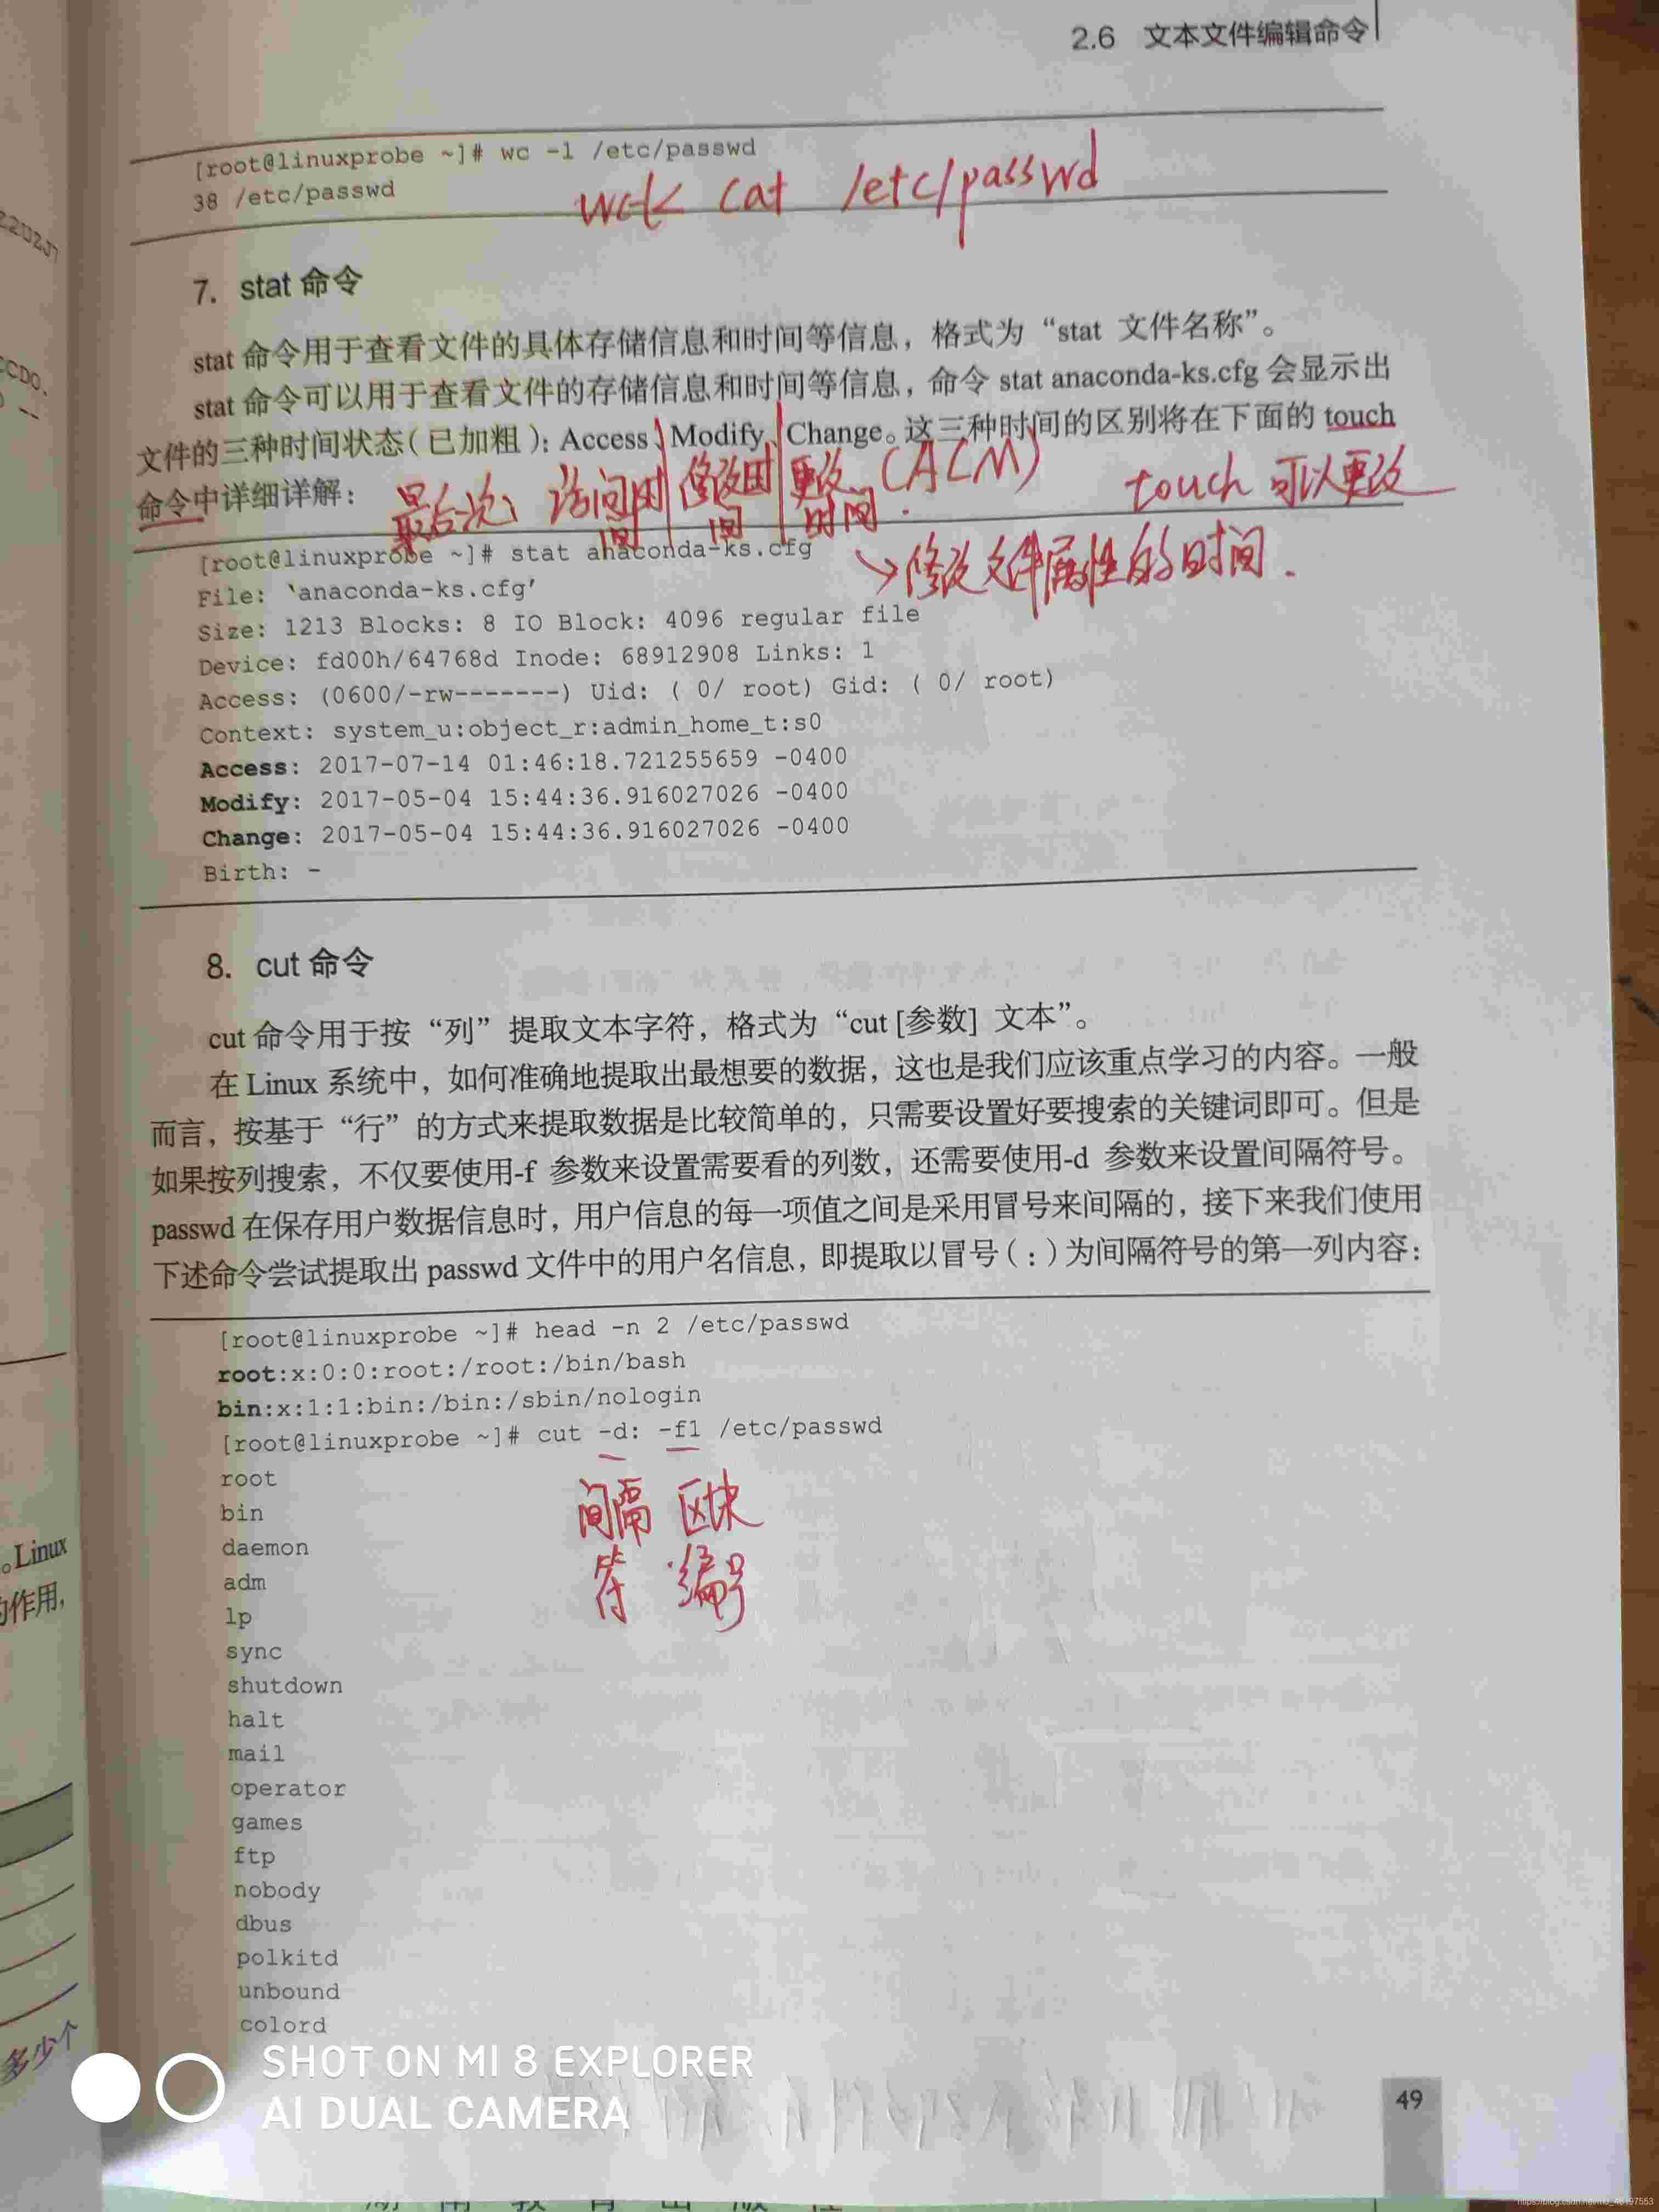 2.6 文本文件编辑命令
[root@linuxprobe ~]# wc -l /etc/passwd
38 /etc/passwd
cat /etc/passwd
7. stat 命令
stat 命令用于查看文件的具体存储信息和时间等信息，格式为“stat 文件名称”。
stat 命令可以用于查看文件的存储信息和时间等信息，命令 stat anaconda-ks.cfg 会显示出
文件的三种时间状态（已加粗）：Access、Modify、Change。这三种时间的区别将在下面的 touch
命令中详细详解：
最后次 访问时间 修改时间 更改时间. (ACM)
touch 可以更改
→修改文件属性的时间.
[root@linuxprobe ~]# stat anaconda-ks.cfg
File: ‘anaconda-ks.cfg’
Size: 1213 Blocks: 8 IO Block: 4096 regular file
Device: fd00h/64768d Inode: 68912908 Links: 1
Access: (0600/-rw-------) Uid: ( 0/ root) Gid: ( 0/ root)
Context: system_u:object_r:admin_home_t:s0
Access: 2017-07-14 01:46:18.721255659 -0400
Modify: 2017-05-04 15:44:36.916027026 -0400
Change: 2017-05-04 15:44:36.916027026 -0400
Birth: -
8. cut 命令
cut 命令用于按“列”提取文本字符，格式为“cut [参数] 文本”。
在 Linux 系统中，如何准确地提取出最想要的数据，这也是我们应该重点学习的内容。一般
而言，按基于“行”的方式来提取数据是比较简单的，只需要设置好要搜索的关键词即可。但是
如果按列搜索，不仅要使用-f 参数来设置需要看的列数，还需要使用-d 参数来设置间隔符号。
passwd 在保存用户数据信息时，用户信息的每一项值之间是采用冒号来间隔的，接下来我们使用
下述命令尝试提取出 passwd 文件中的用户名信息，即提取以冒号（:）为间隔符号的第一列内容：
[root@linuxprobe ~]# head -n 2 /etc/passwd
root:x:0:0:root:/root:/bin/bash
bin:x:1:1:bin:/bin:/sbin/nologin
[root@linuxprobe ~]# cut -d: -f1 /etc/passwd
间隔 区块
符 编号
root
bin
daemon
adm
lp
sync
shutdown
halt
mail
operator
games
ftp
nobody
dbus
polkitd
unbound
colord
。Linux
的作用,
多少个
SHOT ON MI 8 EXPLORER
AI DUAL CAMERA
49